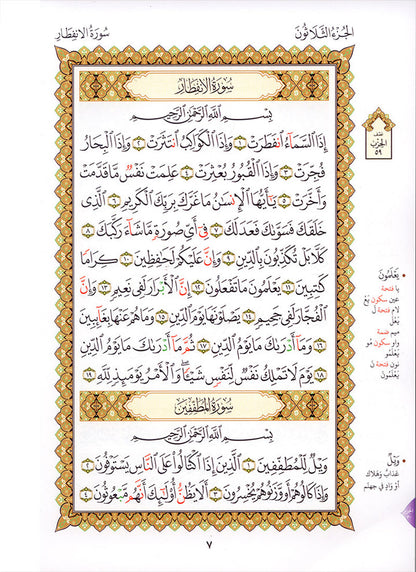 الجُزءُ الثَّلَاثُونَ
سُورَةُ الانفِطَارِ
سُورَةُ الانْفِطَار
بِسْمِ اللَّهِ الرَّحْمَٰنِ الرَّحِيمِ
إِذَا السَّمَاءُ انفَطَرَتْ ١ وَإِذَا الْكَوَاكِبُ انتَثَرَتْ ٢ وَإِذَا الْبِحَارُ
فُجِّرَتْ ٣ وَإِذَا الْقُبُورُ بُعْثِرَتْ ٤ عَلِمَتْ نَفْسٌ مَّا قَدَّمَتْ
وَأَخَّرَتْ ٥ يَا أَيُّهَا الْإِنسَانُ مَا غَرَّكَ بِرَبِّكَ الْكَرِيمِ ٦ الَّذِي
خَلَقَكَ فَسَوَّاكَ فَعَدَلَكَ ٧ فِي أَيِّ صُورَةٍ مَّا شَاءَ رَكَّبَكَ ٨
كَلَّا بَلْ تُكَذِّبُونَ بِالدِّينِ ٩ وَإِنَّ عَلَيْكُمْ لَحَافِظِينَ ١٠ كِرَامًا
كَاتِبِينَ ١١ يَعْلَمُونَ مَا تَفْعَلُونَ ١٢ إِنَّ الْأَبْرَارَ لَفِي نَعِيمٍ ١٣ وَإِنَّ
الْفُجَّارَ لَفِي جَحِيمٍ ١٤ يَصْلَوْنَهَا يَوْمَ الدِّينِ ١٥ وَمَا هُمْ عَنْهَا بِغَائِبِينَ
١٦ وَمَا أَدْرَاكَ مَا يَوْمُ الدِّينِ ١٧ ثُمَّ مَا أَدْرَاكَ مَا يَوْمُ الدِّينِ
١٨ يَوْمَ لَا تَمْلِكُ نَفْسٌ لِّنَفْسٍ شَيْئًا ۖ وَالْأَمْرُ يَوْمَئِذٍ لِّلَّهِ ١٩
سُورَةُ المُطَفِّفِين
بِسْمِ اللَّهِ الرَّحْمَٰنِ الرَّحِيمِ
وَيْلٌ لِّلْمُطَفِّفِينَ ١ الَّذِينَ إِذَا اكْتَالُوا عَلَى النَّاسِ يَسْتَوْفُونَ ٢
وَإِذَا كَالُوهُمْ أَو وَّزَنُوهُمْ يُخْسِرُونَ ٣ أَلَا يَظُنُّ أُولَٰئِكَ أَنَّهُم مَّبْعُوثُونَ ٤
نصف
الحزب
٥٩
• يَعْلَمُونَ
يا فتحة
عين سكون يَعْ
لام فتحة لَ
يَعْلَ
ميم ضمة
واو سكون مُو
نون فتحة نَ
يَعْلَمُونَ
• وَيْلٌ
عَذَابٌ وَهَلَاكٌ
أَوْ وَادٍ فِي جهنّم
٧